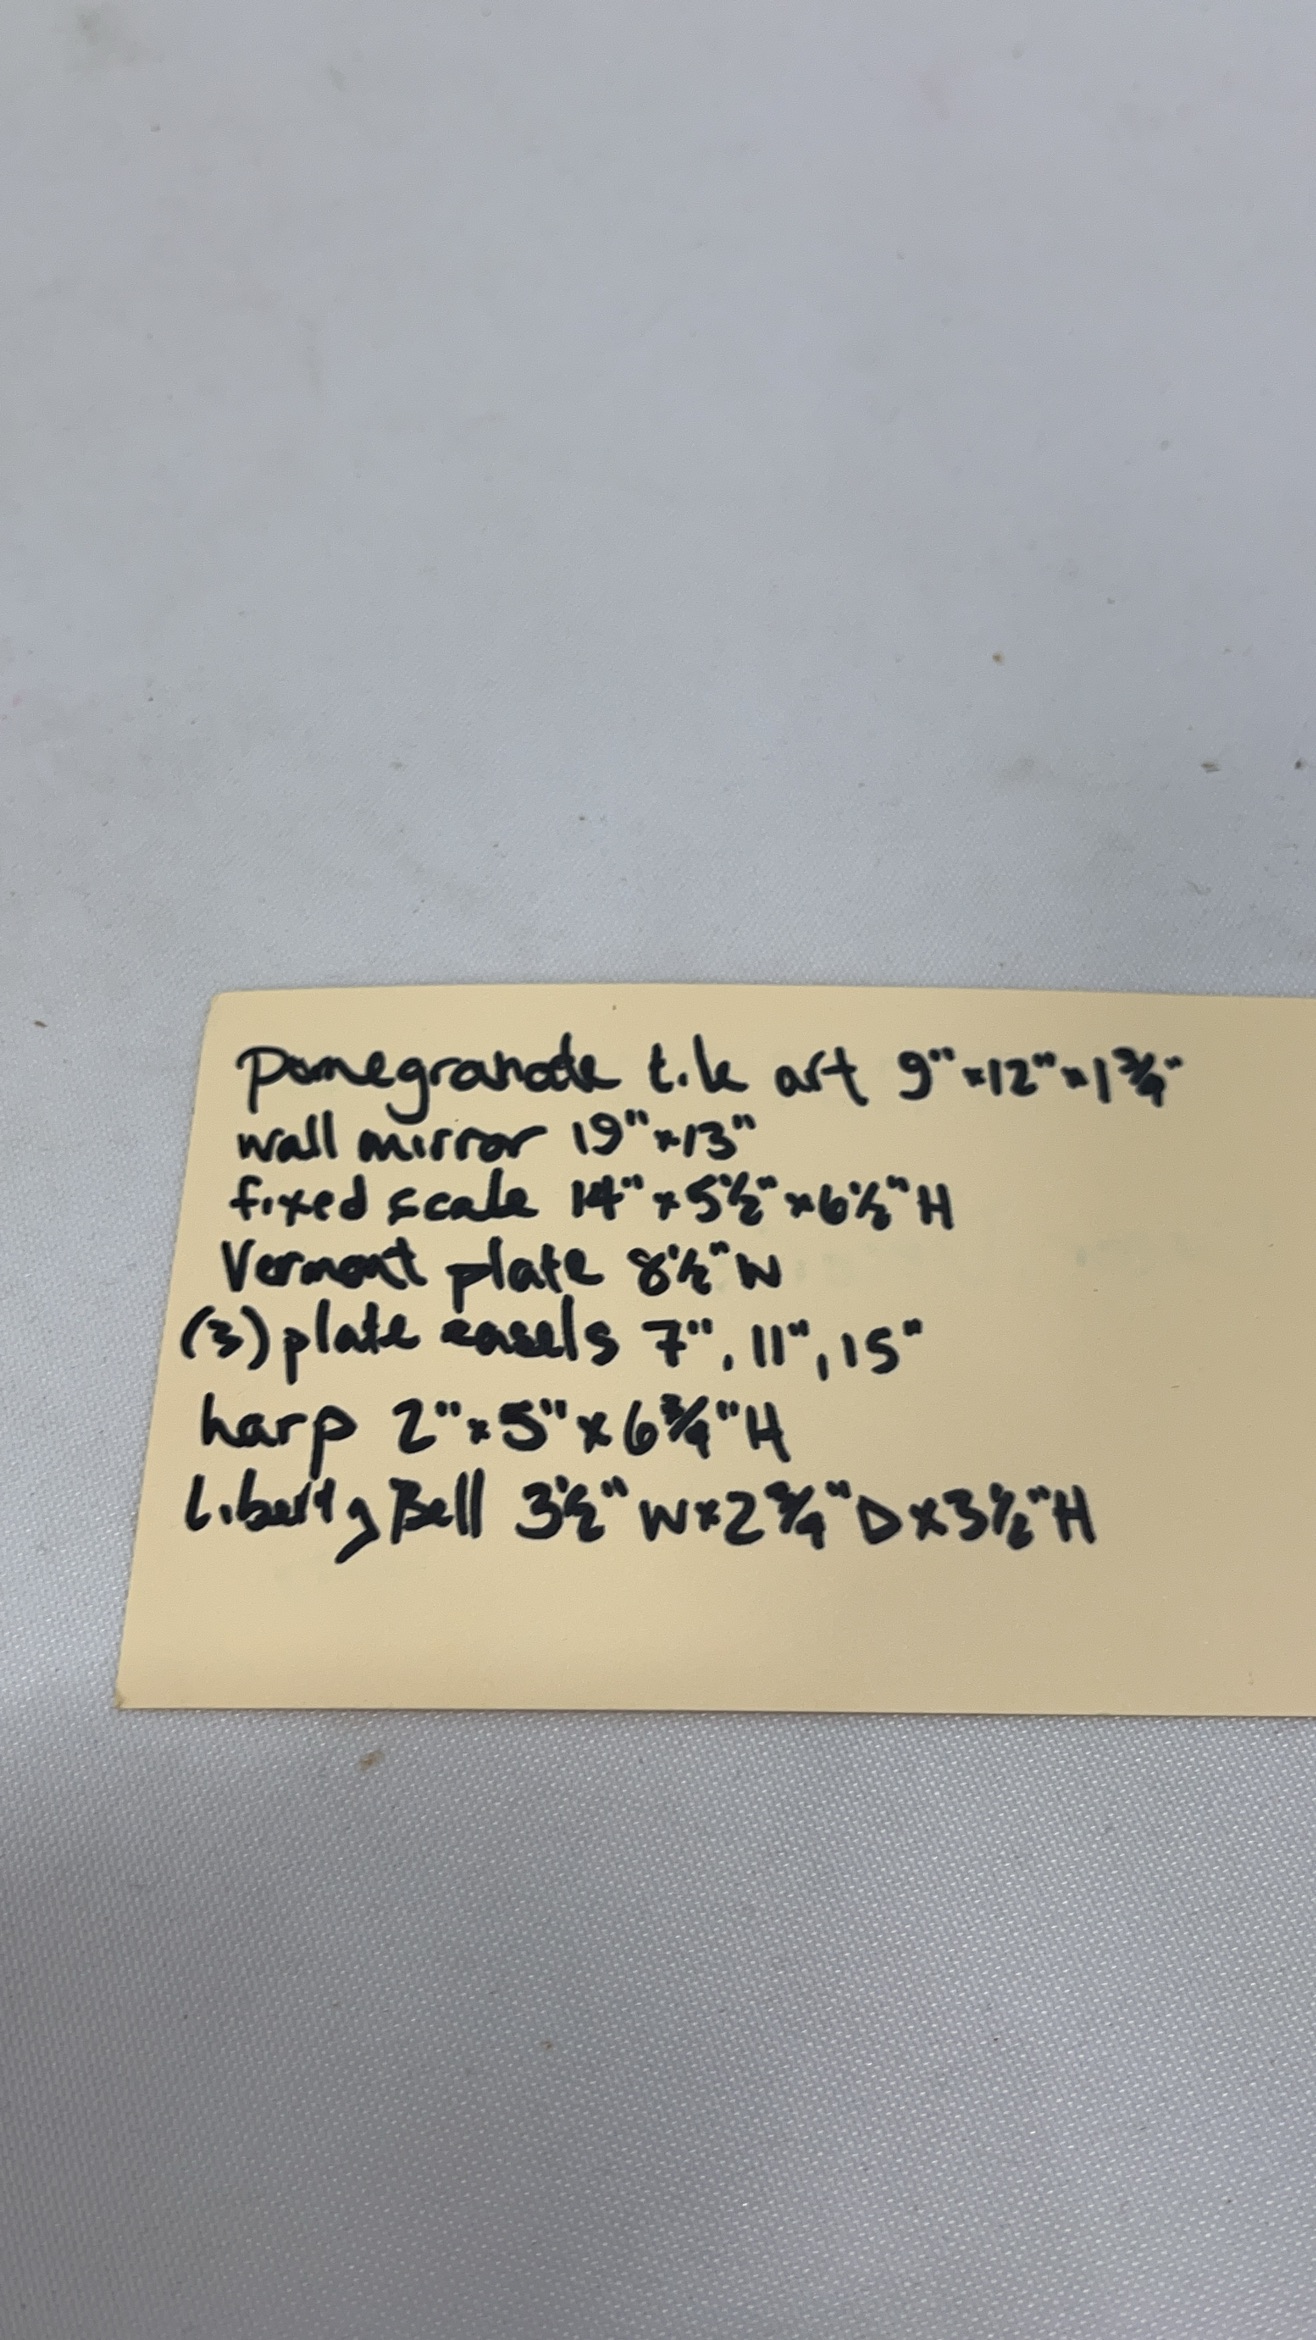 Pomegranate tile art 9" x 12" x 1 3/4"
wall mirror 19" x 13"
fixed scale 14" x 5 1/2" x 6 1/2" H
Vermont plate 8 1/2" W
(3) plate easels 7", 11", 15"
harp 2" x 5" x 6 3/4" H
Liberty Bell 3 1/2" W x 2 3/4" D x 3 1/2" H